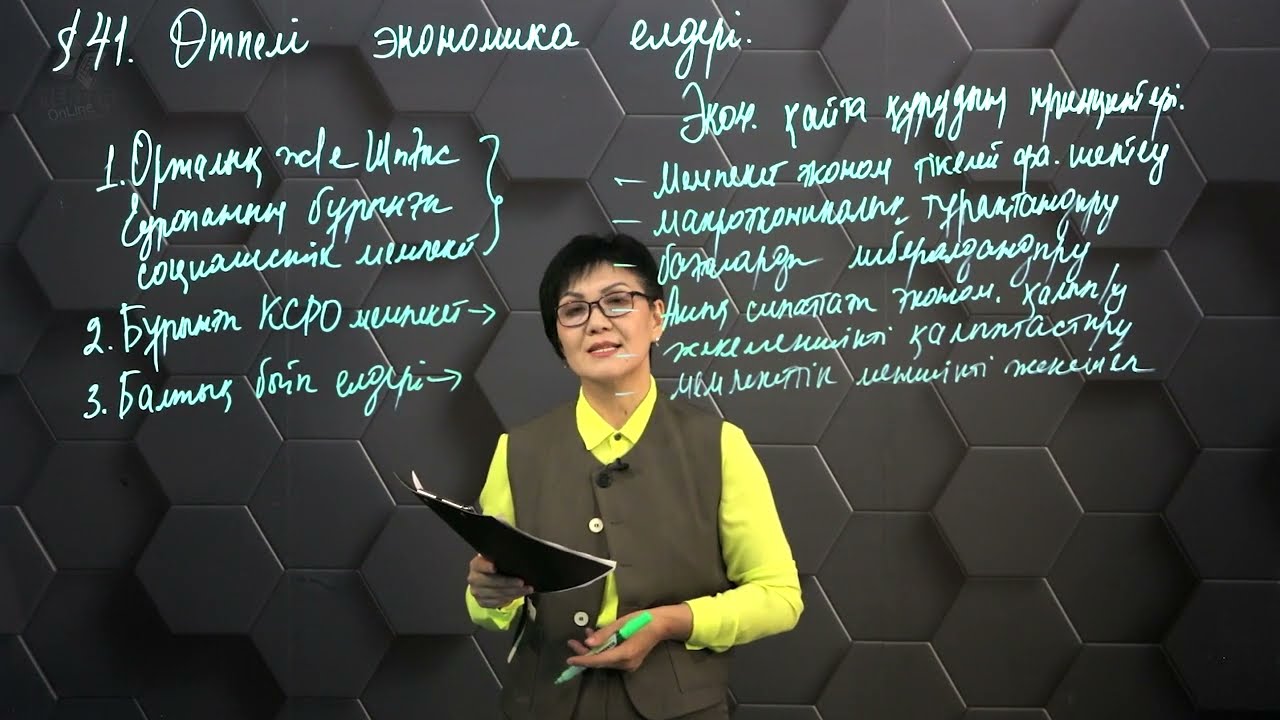 § 41. Өтпелі экономика елдері.
1. Орталық және Шығыс
Еуропаның бұрынғы
социалистік мемлекет
2. Бұрынғы КСРО мемлекет →
3. Балтық бойы елдері →
Экон. қайта құрудың принциптері.
— Мемлекет эконом тікелей
— макроэкономикалық тұрақтандыру
— бағаларды либералдандыру
Ашық сипаттағы эконом. қалып/у
— жекеменшікті қалыптастыру
— мемлекеттік меншікті
OnLine